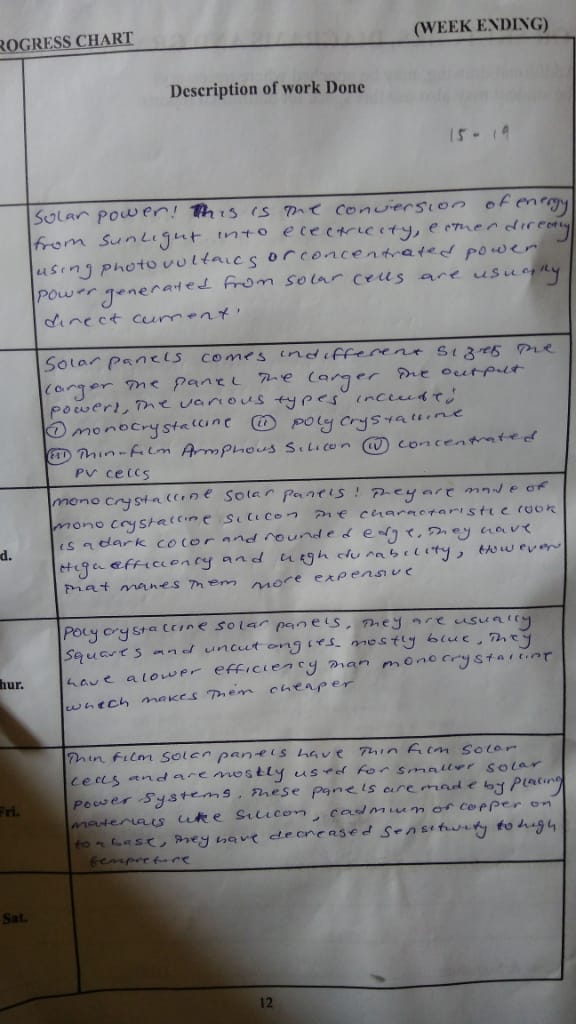 ROGRESS CHART
(WEEK ENDING)
Description of work Done
15 - 19
Solar power! This is the conversion of energy
from sunlight into electricity, either directly
using photovoltaics or concentrated power
power generated from solar cells are usually
direct current.
Solar panels comes indifferent sizes the
larger the panel the larger the output
powers, The various types include;
(i) monocrystalline (ii) polycrystalline
(iii) Thin-film Armphous Silicon (iv) concentrated
PV cells
d.
mono crystalline solar panels! They are made of
mono crystalline silicon the characteristic look
is a dark color and rounded edge, They have
High efficiency and high durability, However
that makes them more expensive
hur.
Poly crystalline solar panels, They are usually
squares and uncut angles mostly blue, They
have a lower efficiency than monocrystalline
which makes them cheaper
Fri.
Thin film solar panels have thin film solar
cells and are mostly used for smaller solar
power systems. These panels are made by placing
materials like silicon, cadmium or copper on
to a base, They have decreased sensitivity to high
tempreture
Sat.
12